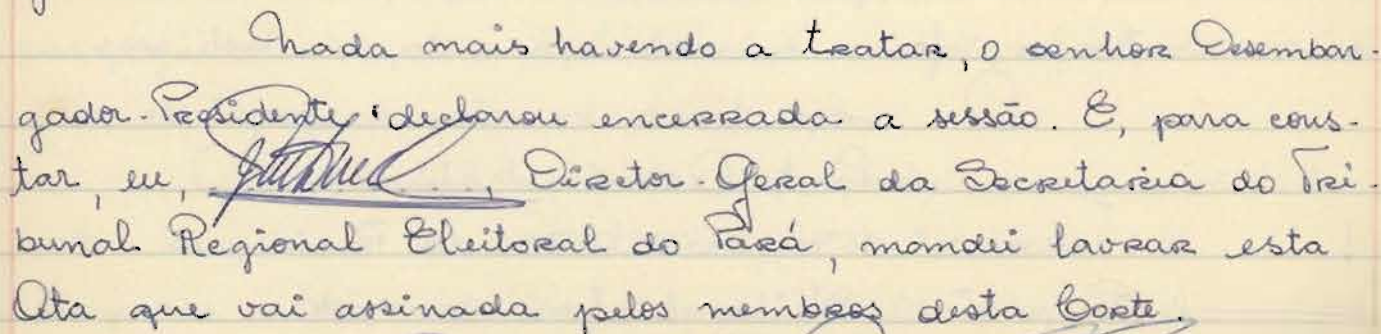 Nada mais havendo a tratar, o senhor Desembar-
gador-Presidente declarou encerrada a sessão. E, para cons-
tar, eu, , Diretor-Geral da Secretaria do Tri-
bunal Regional Eleitoral do Pará, mandei lavrar esta
Ata que vai assinada pelos membros desta Corte.